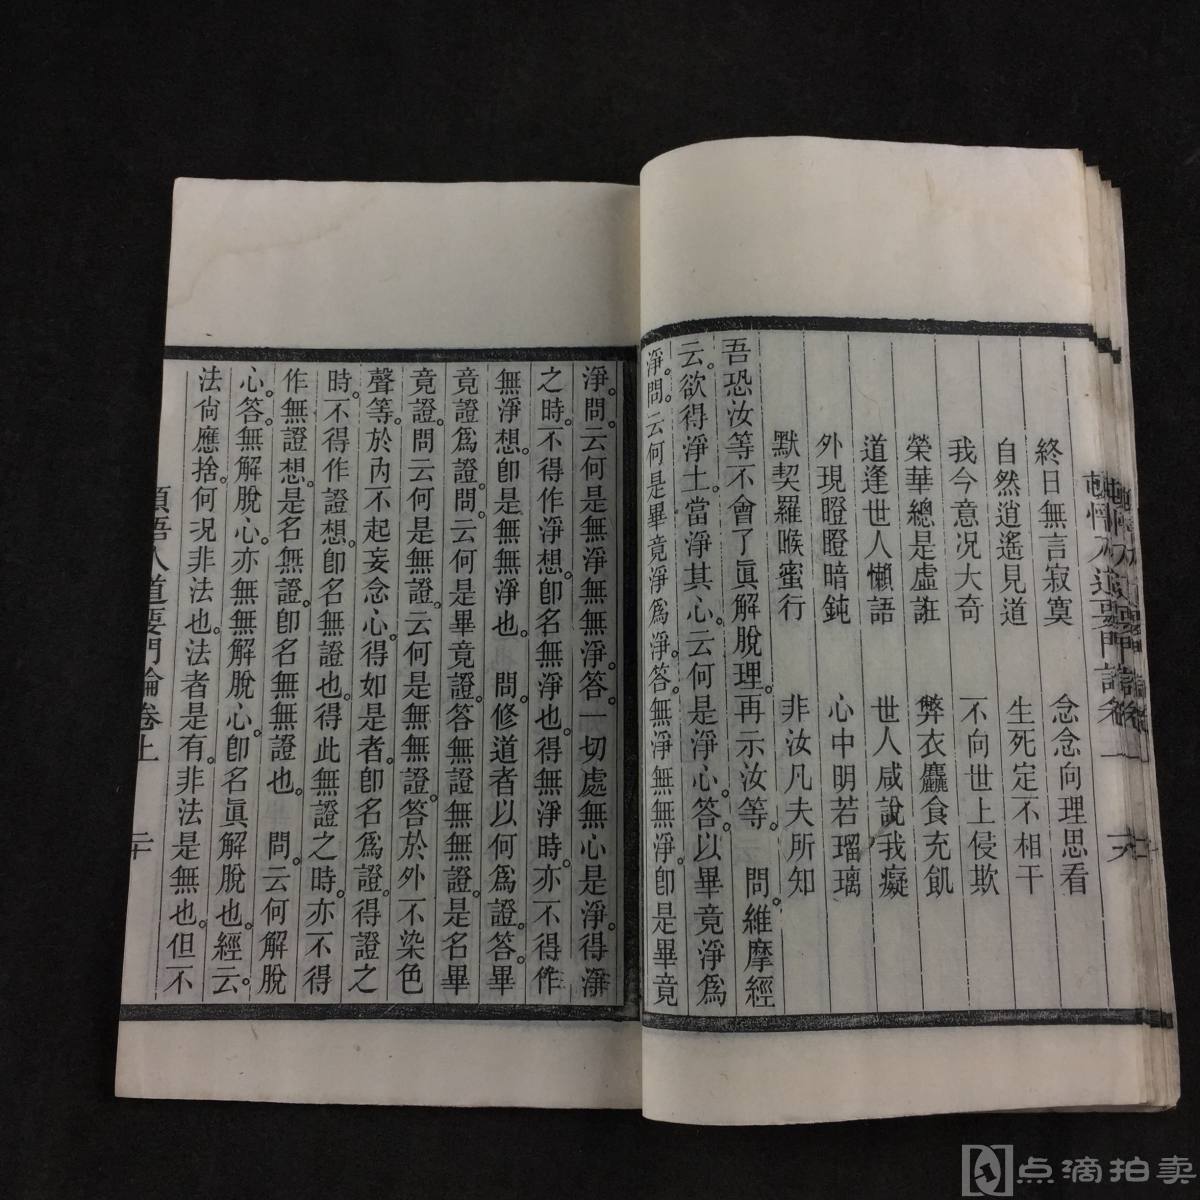 終日無言寂寞　念念向理思看
自然逍遙見道　生死定不相干
我今意況大奇　不向世上侵欺
榮華總是虛誑　弊衣麤食充飢
道逢世人懶語　世人咸說我癡
外現瞪瞪暗鈍　心中明若瑠璃
默契羅睺蜜行　非汝凡夫所知
吾恐汝等不會了眞解脫理。再示汝等。　問。維摩經
云。欲得淨土。當淨其心。云何是淨心。答。以畢竟淨爲
淨。問。云何是畢竟淨爲淨。答。無淨無無淨。卽是畢竟
淨。問。云何是無淨無無淨。答。一切處無心是淨。得淨
之時。不得作淨想。卽名無淨也。得無淨時。亦不得作
無淨想。卽是無無淨也。　問。修道者以何爲證。答。畢
竟證爲證。問。云何是畢竟證。答。無證無無證。是名畢
竟證。問。云何是無證。云何是無無證。答。於外不染色
聲等。於內不起妄念心。得如是者。卽名爲證。得證之
時。不得作證想。卽名無證也。得此無證之時。亦不得
作無證想。是名無證。卽名無無證也。　問。云何解脫
心。答。無解脫心。亦無無解脫心。卽名眞解脫也。經云。
法尙應捨。何況非法也。法者是有。非法是無也。但不
頓悟入道要門論卷上　二十
点滴拍卖